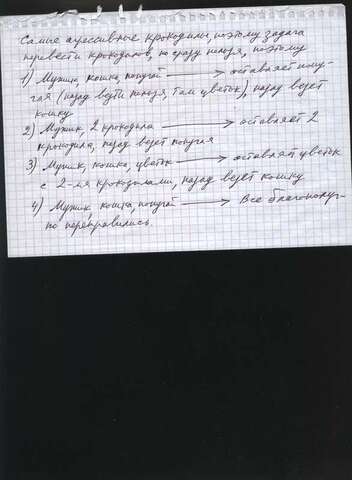 Самые агрессивные крокодилы, поэтому задача
перевести крокодилов, но сразу нельзя, поэтому
1) Мужик, кошка, попугай → оставляет попу-
гая (назад везти нельзя, там цветок), назад везет
кошку
2) Мужик, 2 крокодила → оставляет 2
крокодила, назад везет попугая
3) Мужик, кошка, цветок → оставляет цветок
с 2-мя крокодилами, назад везет кошку
4) Мужик, кошка, попугай → Все благополуч-
но переправились.